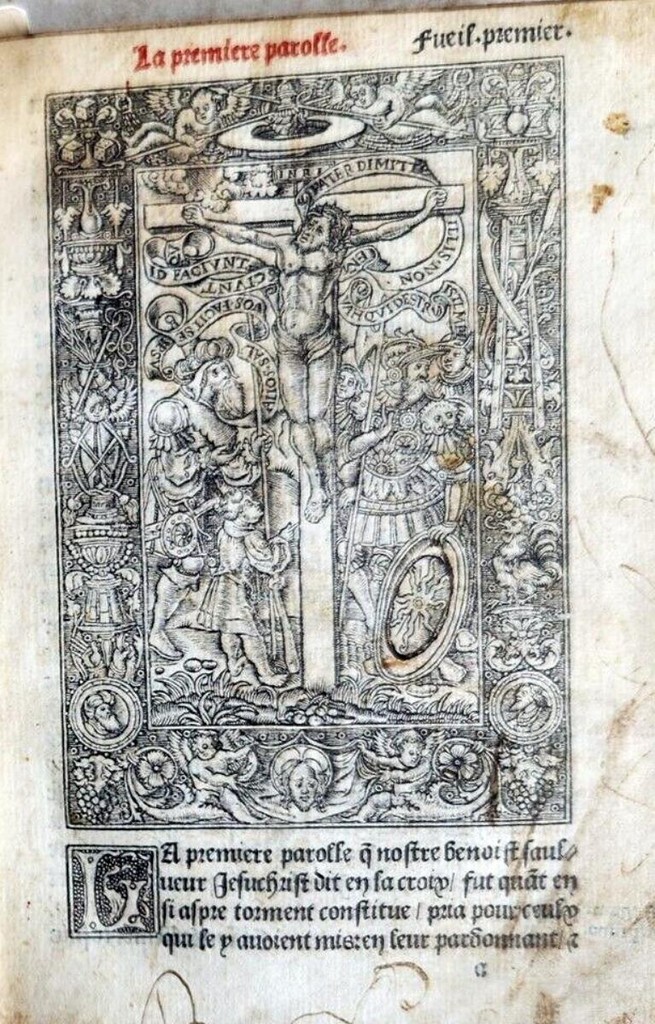 La premiere parolle.
Fueil. premier.
INRI
PATER DIMITTE
ILLIS NON
ID FACIVNT
LA premiere parolle q̃ nostre benoist saul⸗
ueur Jesuchrist dit en la croix/ fut quãt en
si aspre torment constitue / pria pour ceulx
qui le y auoient mis: en leur pardonnant/ ⁊
G